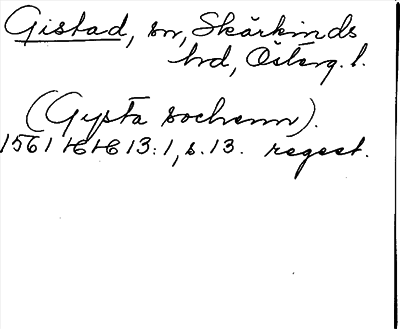 Gistad, sn, Skärkinds
hd, Österg. l.
(Gysta sochenn).
1561 HH 13:1, s. 13. regest.